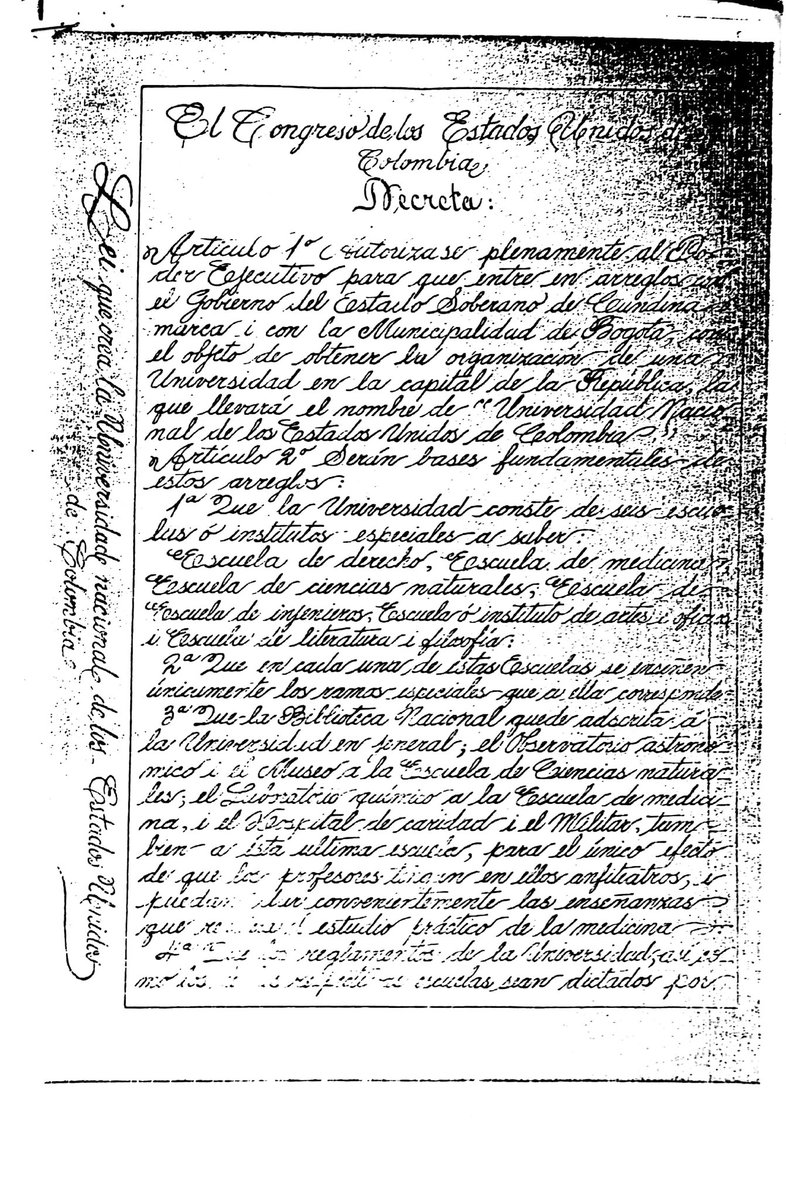 El Congreso de los Estados Unidos de
Colombia
Decreta:
Artículo 1º Autorizase plenamente al Po-
der Ejecutivo para que entre en arreglos con
el Gobierno del Estado Soberano de Cundina-
marca i con la Municipalidad de Bogotá, con
el objeto de obtener la organización de una
Universidad en la capital de la República, la
que llevará el nombre de "Universidad Nacio-
nal de los Estados Unidos de Colombia".
Artículo 2º Serán bases fundamentales de
estos arreglos:
1ª Que la Universidad conste de seis escue-
las ó institutos especiales a saber:
Escuela de derecho, Escuela de medicina,
Escuela de ciencias naturales, Escuela de
Escuela de injenieros, Escuela ó instituto de artes i oficios
i Escuela de literatura i filosofía:
2ª Que en cada una de estas Escuelas se enseñen
únicamente los ramos especiales que a ella corresponde
3ª Que la Biblioteca Nacional quede adscrita á
la Universidad en jeneral; el Observatorio astronó-
mico i el Museo a la Escuela de Ciencias natura-
les; el Laboratorio químico a la Escuela de medici-
na, i el Hospital de caridad i el Militar, tam-
bien a esta ultima escuela, para el único efecto
de que los profesores tengan en ellos anfiteatros, i
puedan dar convenientemente las enseñanzas
que el estudio práctico de la medicina
4ª Que los reglamentos de la Universidad, así co-
mo los de las respectivas escuelas sean dictados por
Lei que crea la Universidad nacional de los Estados Unidos
de Colombia